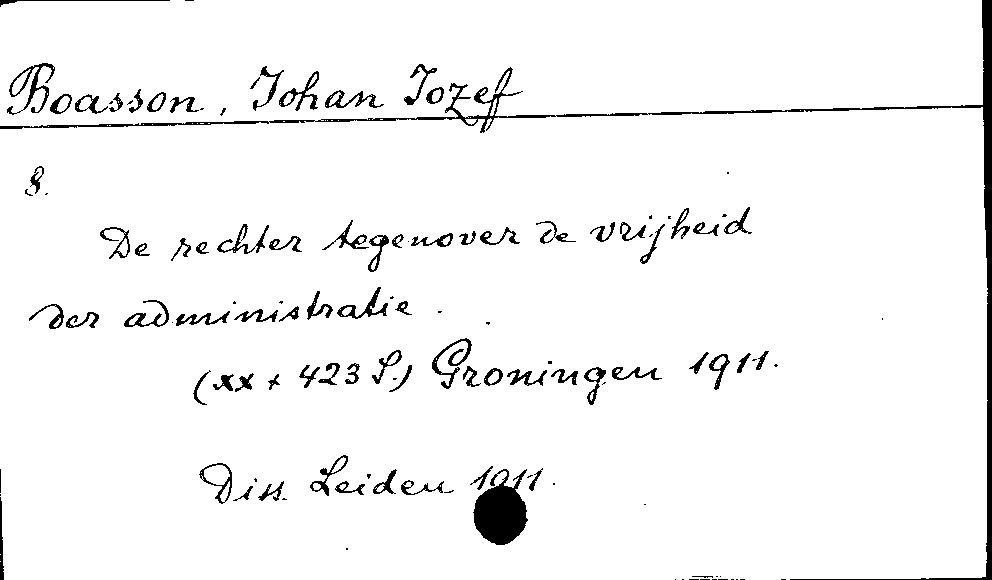 Boasson, Johan Jozef
8.
De rechter tegenover de vrijheid
der administratie.
(xx + 423 S.) Groningen 1911.
Diss. Leiden 1911.